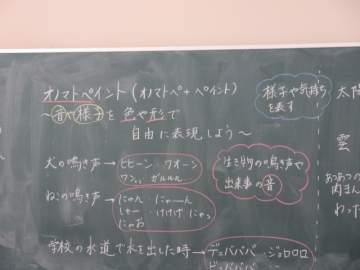 オノマトペイント(オノマトペ+ペイント)
~音や様子を色や形で
自由に表現しよう~
様子や気持ち
を表す
太陽
雲
犬の鳴き声→
ヒヒーン・ワオーン
ワンッ・ガルルル
生き物の鳴き声や
出来事の音
ねこの鳴き声→
にゃん・にゃーん
しゃー・けけけ にゃっ
にゃお
学校の水道で水を出した時→
デュバババ・ジョロロロ